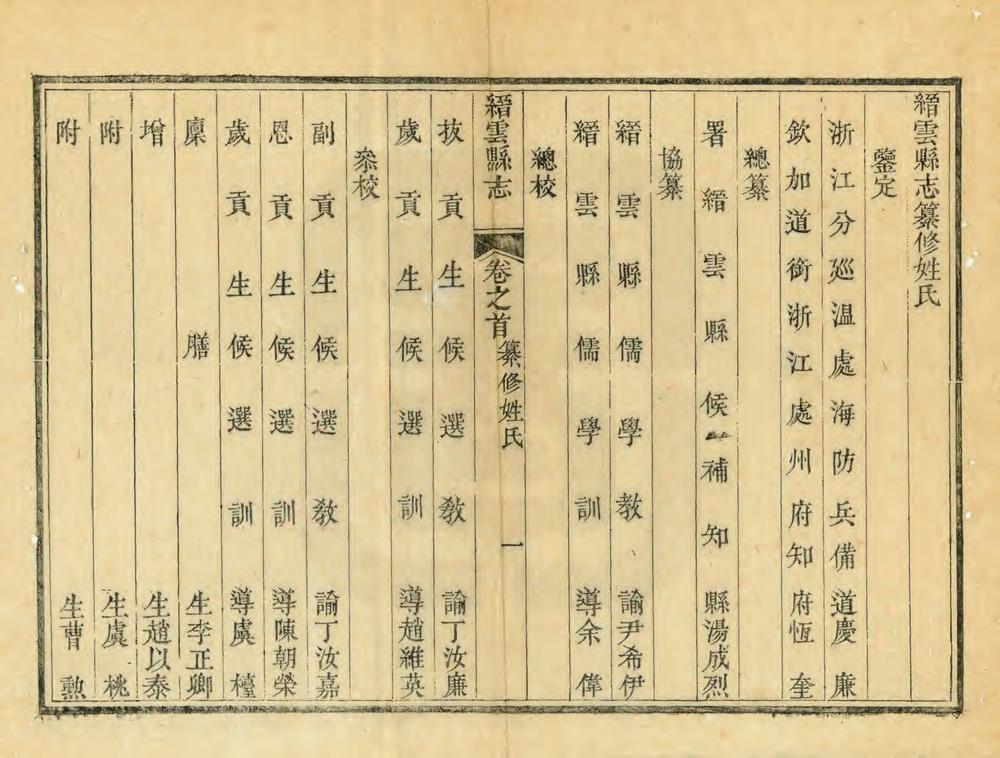 縉雲縣志纂修姓氏
鑒定
浙江分廵溫處海防兵備道慶廉
欽加道銜浙江處州府知府恆奎
總纂
署縉雲縣候補知縣湯成烈
協纂
縉雲縣儒學教諭尹希伊
縉雲縣儒學訓導余偉
總校
縉雲縣志 卷之首 纂修姓氏 一
拔貢生候選教諭丁汝廉
歲貢生候選訓導趙維英
叅校
副貢生候選教諭丁汝嘉
恩貢生候選訓導陳朝榮
歲貢生候選訓導虞橦
廩膳生李正卿
增生趙以泰
附生虞桃
附生曹勲